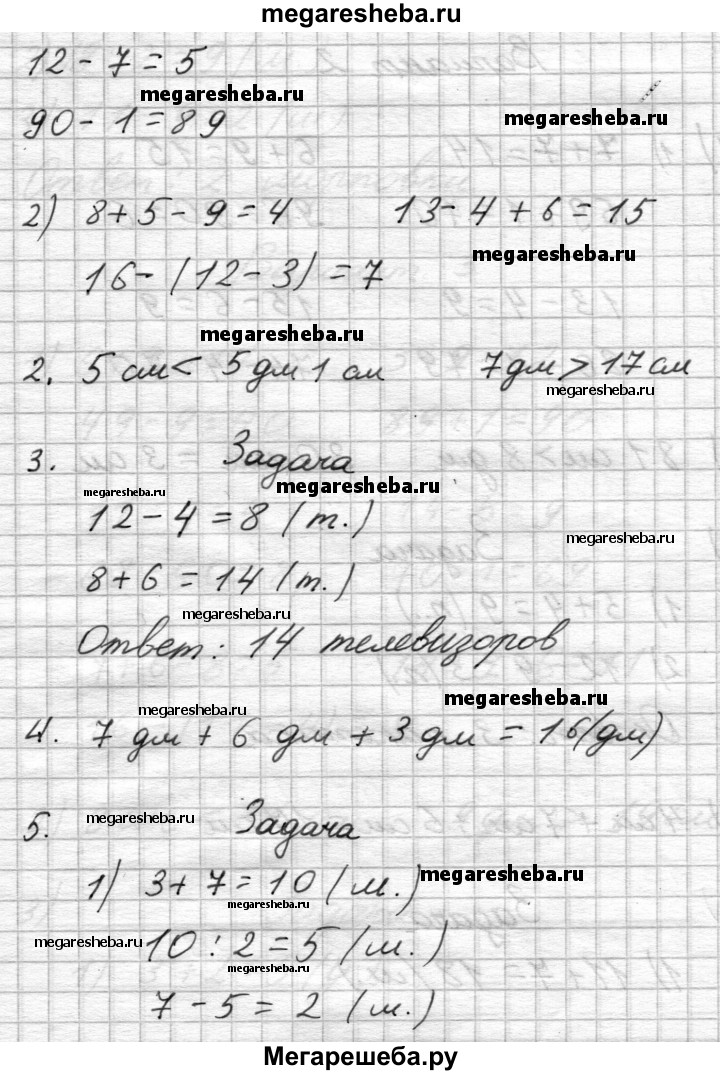 megaresheba.ru
12 - 7 = 5
megaresheba.ru
90 - 1 = 89
megaresheba.ru
2) 8 + 5 - 9 = 4 13 - 4 + 6 = 15
megaresheba.ru
16 - (12 - 3) = 7
megaresheba.ru
2. 5 см < 5 дм 1 см 7 дм > 17 см
megaresheba.ru
3. Задача
megaresheba.ru
megaresheba.ru
12 - 4 = 8 (т.)
megaresheba.ru
8 + 6 = 14 (т.)
megaresheba.ru
Ответ: 14 телевизоров
megaresheba.ru
megaresheba.ru
4. 7 дм + 6 дм + 3 дм = 16 (дм)
5. megaresheba.ru Задача
1) 3 + 7 = 10 (м.)
megaresheba.ru
megaresheba.ru
megaresheba.ru
10 : 2 = 5 (м.)
megaresheba.ru
7 - 5 = 2 (м.)
Мегарешеба.ру